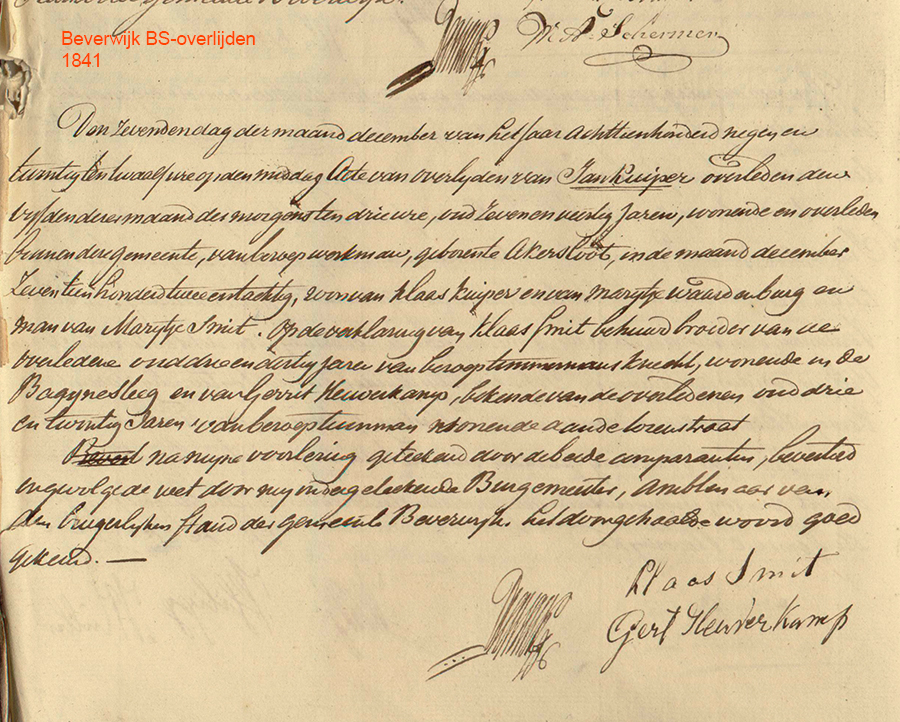 W. A. Schermer
Beverwijk BS-overlijden
1841
Den Zevenden dag der maand december van het jaar achttienhonderd negen en
twintig ten twaalf ure op den middag Acte van overlyden van Jan Kuiper overleden den
vyfden dezer maand des morgens ten drie ure, oud Zeven en veertig Jaren, wonende en overleden
binnen deze gemeente, van beroep werkman, geboren te Akersloot, in de maand december
Zeventien honderd twee en tachtig, zoon van Klaas Kuiper en van Marytje Waardenburg en
man van Marytje Smit. Op de verklaring van Klaas Smit behuwd broeder van de
overledene oud drie en dertig jaren van beroep timmermans knecht, wonende in de
Bagynesteeg en van Gerrit Heuverkamp, bekende van de overledenen oud drie
en twintig Jaren van beroep tuinman wonende aan de torenstraat
na myne voorlezing geteekend door de beide comparanten, bevestigd
ingevolge de wet door my ondergeteekende Burgemeester, Ambtenaar van
den burgerlyken stand der gemeente Beverwyk het doorgehaalde woord goed
gekeurd. —
Klaas Smit
Gert Heuverkamp